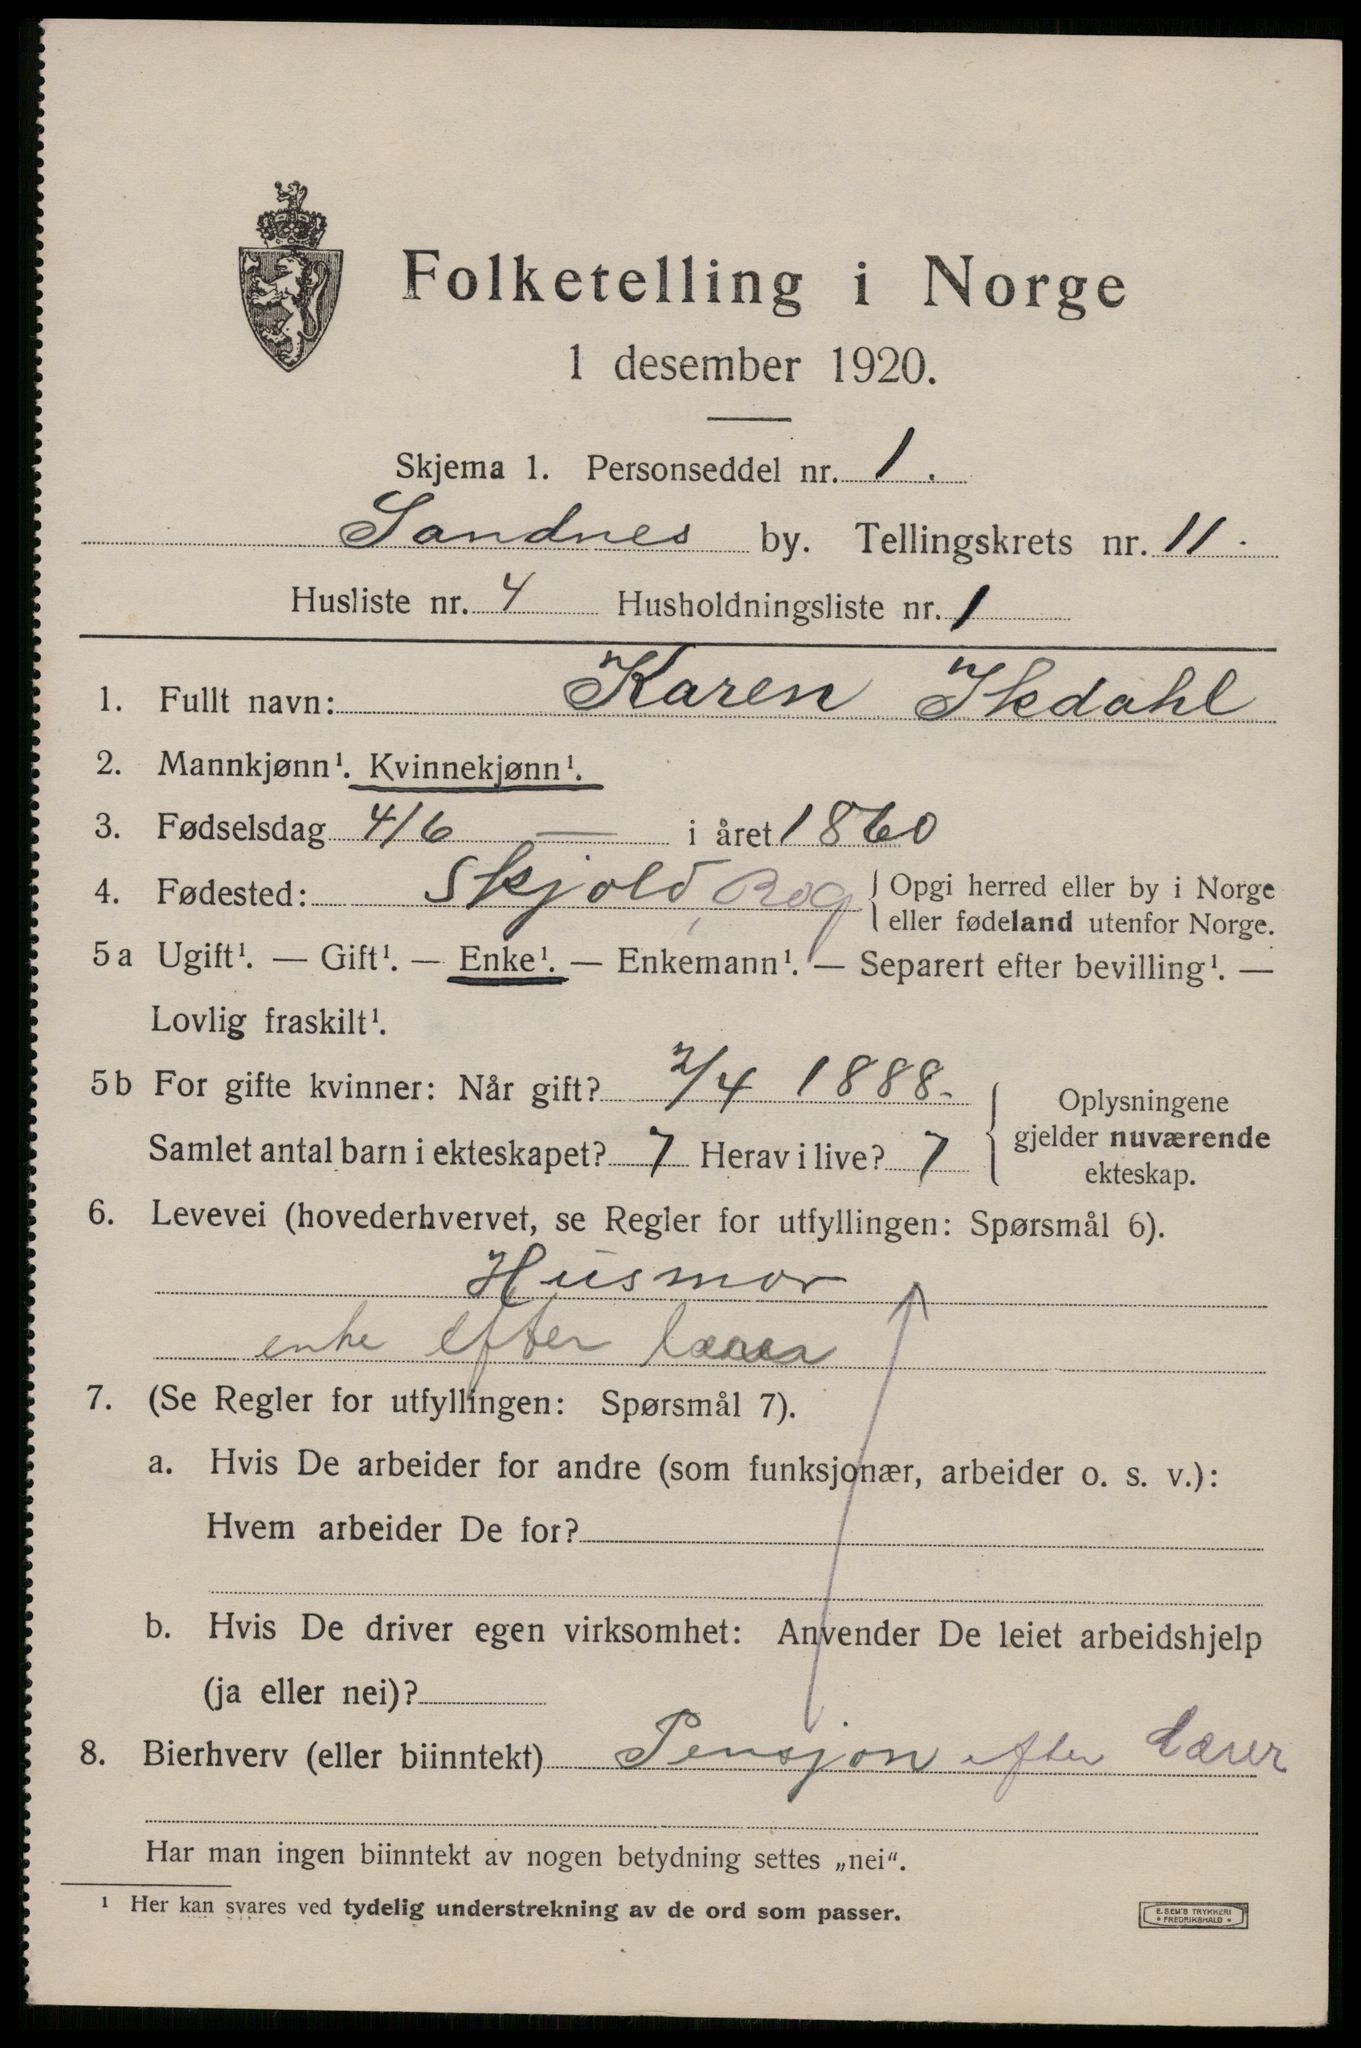 Folketelling i Norge
1 desember 1920.
Skjema 1. Personseddel nr. 1.
Sandnes by. Tellingskrets nr. 11.
Husliste nr. 4 Husholdningsliste nr. 1
1. Fullt navn: Karen Ikdahl
2. Mannkjønn¹. Kvinnekjønn¹.
3. Fødselsdag 4/6 — i året 1860
4. Fødested: Skjold, Rog { Opgi herred eller by i Norge
eller fødeland utenfor Norge.
5a Ugift¹. — Gift¹. — Enke¹. — Enkemann¹. — Separert efter bevilling¹. —
Lovlig fraskilt¹.
5b For gifte kvinner: Når gift? 2/4 1888.
Samlet antal barn i ekteskapet? 7 Herav i live? 7
Oplysningene
gjelder nuværende
ekteskap.
6. Levevei (hovederhvervet, se Regler for utfyllingen: Spørsmål 6).
Husmor
enke efter lærer
7. (Se Regler for utfyllingen: Spørsmål 7).
a. Hvis De arbeider for andre (som funksjonær, arbeider o. s. v.):
Hvem arbeider De for?
b. Hvis De driver egen virksomhet: Anvender De leiet arbeidshjelp
(ja eller nei)?
8. Bierhverv (eller biinntekt) Pensjon efter Lærer
Har man ingen biinntekt av nogen betydning settes „nei“.
¹ Her kan svares ved tydelig understrekning av de ord som passer.
E. SEM'S TRYKKERI
* FREDRIKSHALD *